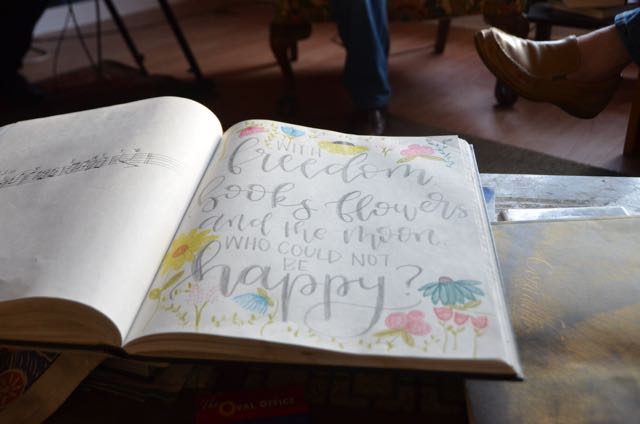 WITH
freedom,
books flowers
and the moon.
WHO COULD NOT
BE
happy?
The OVAL OFFICE